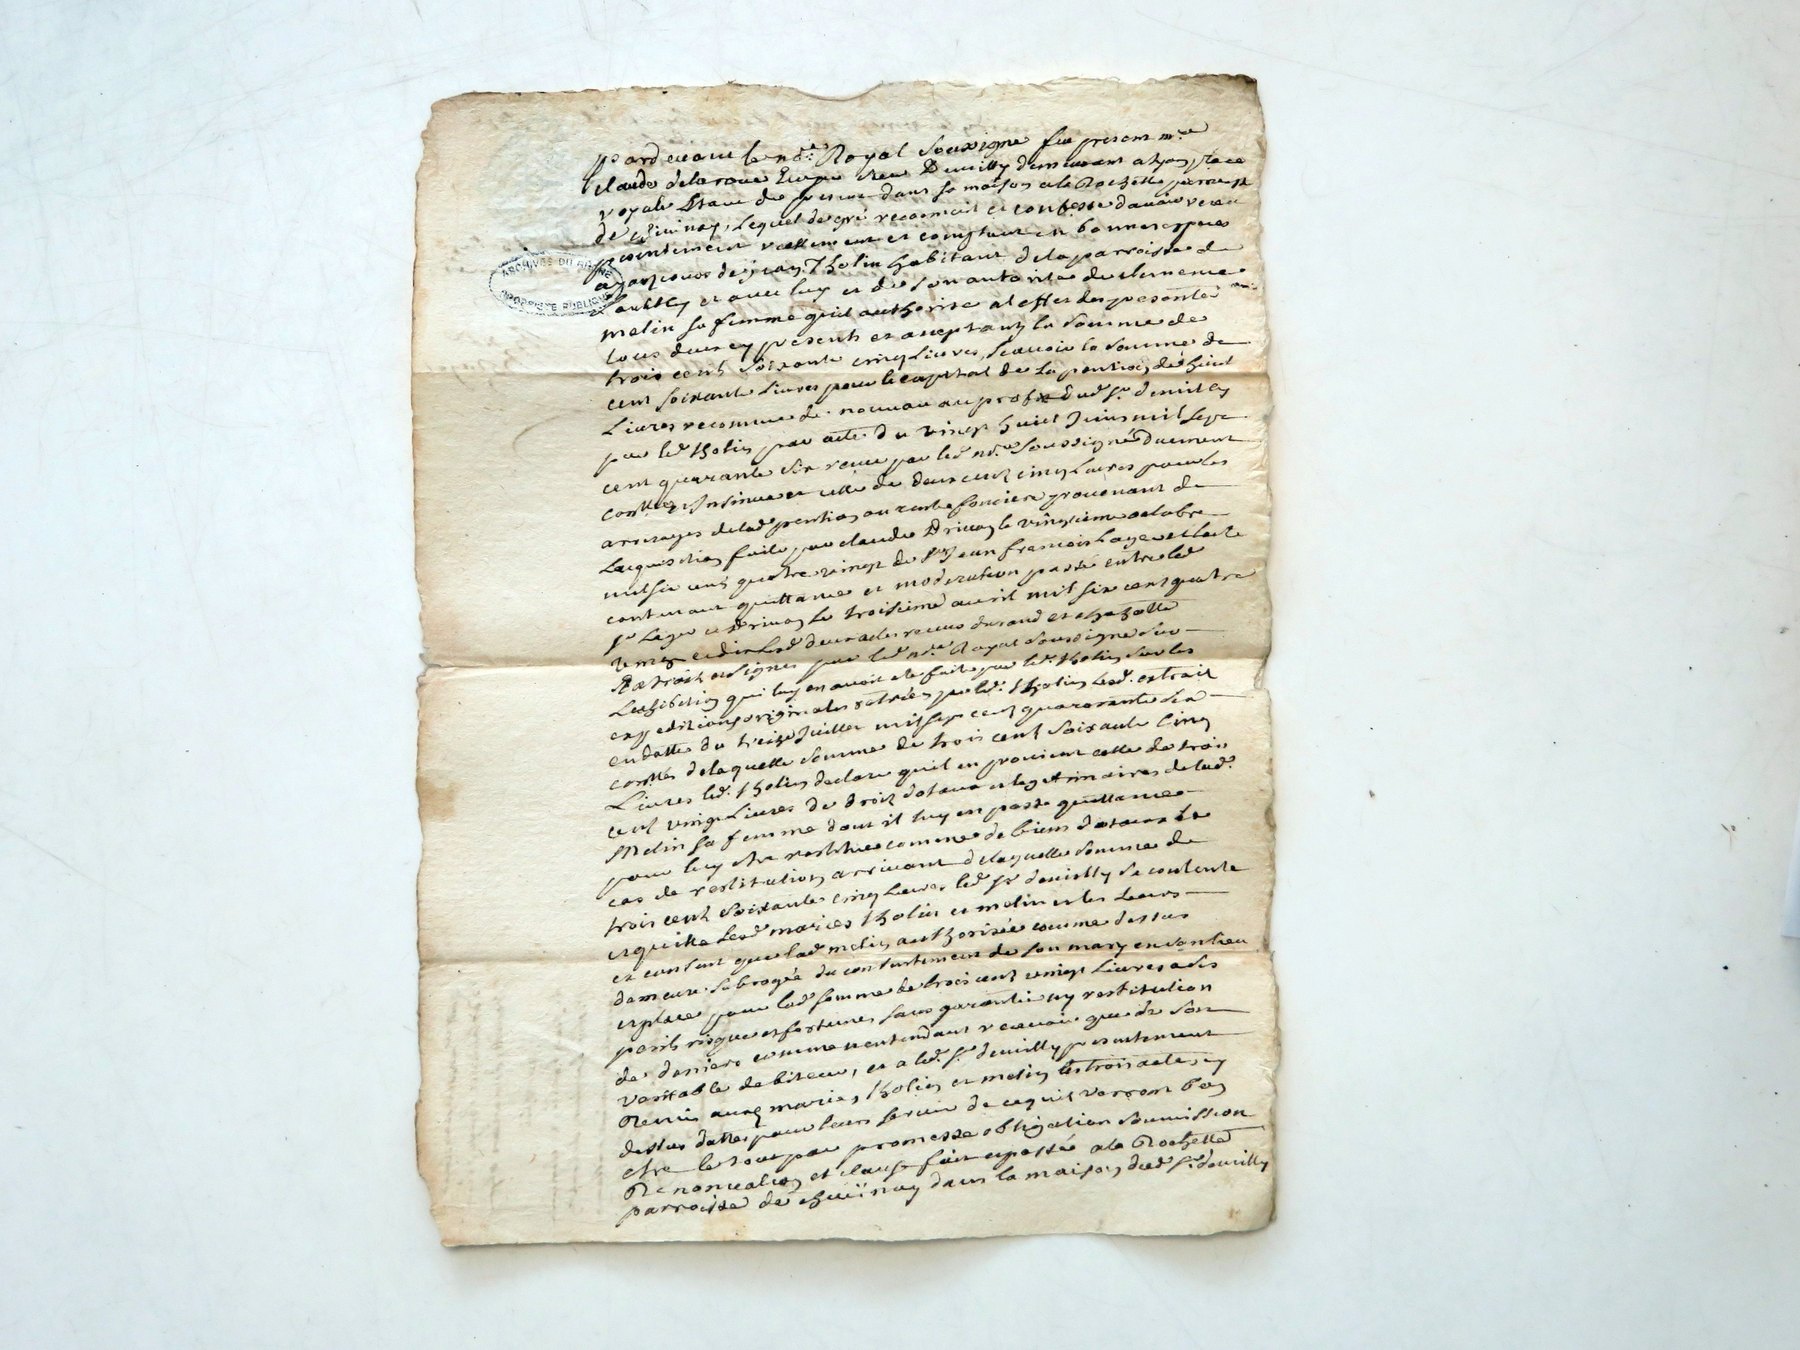 pardevant le no.re Royal Soussigné fut present m.re
Claude delaroue Ecuyer Deuilly demeurant a Lyon place
royale Etant de present dans sa maison ala Rochette parroisse
de Chuinay, Lequel de gré reconnoit et confesse d'avoir receu
presentement reellement et comptant en bonnes especes
ayant cours de jean Tholin habitant dela parroisse de
et avec luy et de son autorité de clemence
melin sa femme qu'il authorise al'effet des presentes
tous deux cy presents et aceptants la somme de
trois cent soixante cinq Livres, scavoir la somme de
cent soixante Livres pour le capital de la pention de huit
Livres reconnue de nouveau au profit dud. Sr. deuilly
par led. Tholin par acte du vingt huict Juin mil sept
cent quarante six receu par led. no.re soussigné duement
con.llé et Insinué et celle de deux cent cinq Livres pour les
arrerages de lad. pention ou rente fonciere provenant de
Lacquisition faite par claude Drivon le vingtieme octobre
mil six cent quatre vingt de Sr. Jean francois Laye et lacte
contenant quittance et moderation passé entre led.
Sr. Laye et Drivon le troisieme avril mil six cent quatre
vingt et dix Lesd. deux actes receus durand et chazotte
Extraits et signés par led. no.re Royal Soussigné sur
Lexhibition qui luy en avoit eté faite par led. Tholin sur les
expeditions originales retirées par led. Tholin Led. extrait
en datte du treize Juillet mil sept cent quarante six
con.llés delaquelle somme de trois cent soixante cinq
Livres led. Tholin declare qu'il en provient celle de trois
cent vingt Livres de droits dotaux et legitimaires de lad.
Melin sa femme dont il luy en passe quittance
pour luy etre restituée comme de biens dotaux le
cas de restitution arrivant delaquelle somme de
trois cent soixante cinq Livres led. Sr. deuilly se contente
et quitte Lesd. mariés Tholin et melin et les Leurs
et consent que lad. melin authorisée comme dessus
demeure subrogée du consentement de son mary en son lieu
et place pour lad. somme de trois cent vingt Livres a ses
perils risques et fortunes sans garantie ny restitution
de deniers comme n'entendant recevoir que de son
veritable debiteur, et a led. Sr. deuilly presentement
Remis auxd. mariés Tholin et melin les trois actes cy
dessus dattés pour leurs servir de ce qu'ils verront bon
etre le tout par promesse obligation soumission
Renonciation et clause fait et passé ala Rochette
parroisse de chuinay dans la maison dud. Sr. deuilly
ARCHIVES DU RHONE
PROPRIETE PUBLIQUE